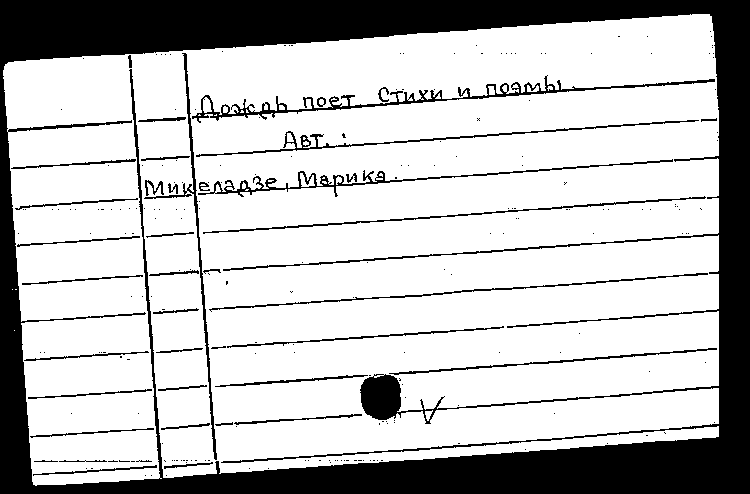 Дождь поет. Стихи и поэмы.
Авт.:
Микеладзе, Марика.
V